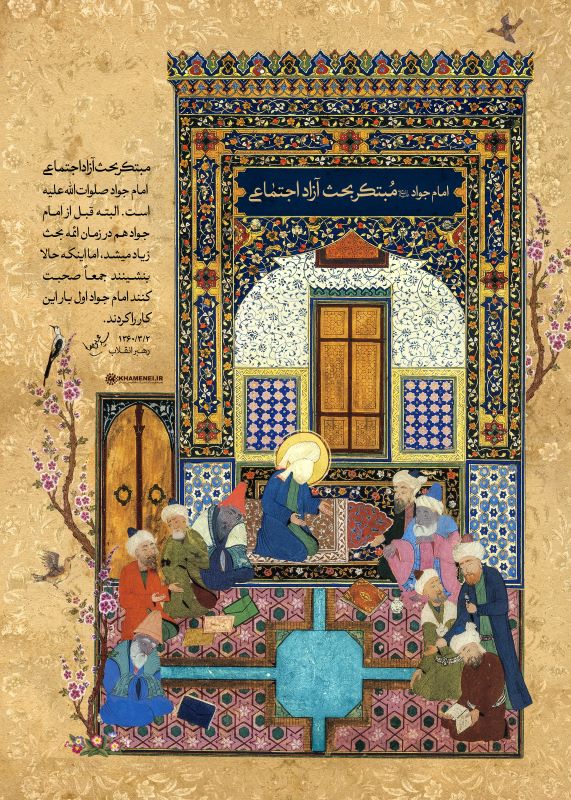 امام جواد مُبتکر بحث آزاد اجتماعی
مبتکر بحث آزاد اجتماعی
امام جواد صلوات‌الله علیه
است. البته قبل از امام
جواد هم در زمان ائمّه بحث
زیاد میشد، اما اینکه حالا
بنشینند جمعاً صحبت
کنند امام جواد اول بار این
کار را کردند.
۱۳۶۰/۳/۲
رهبر انقلاب
KHAMENEI.IR